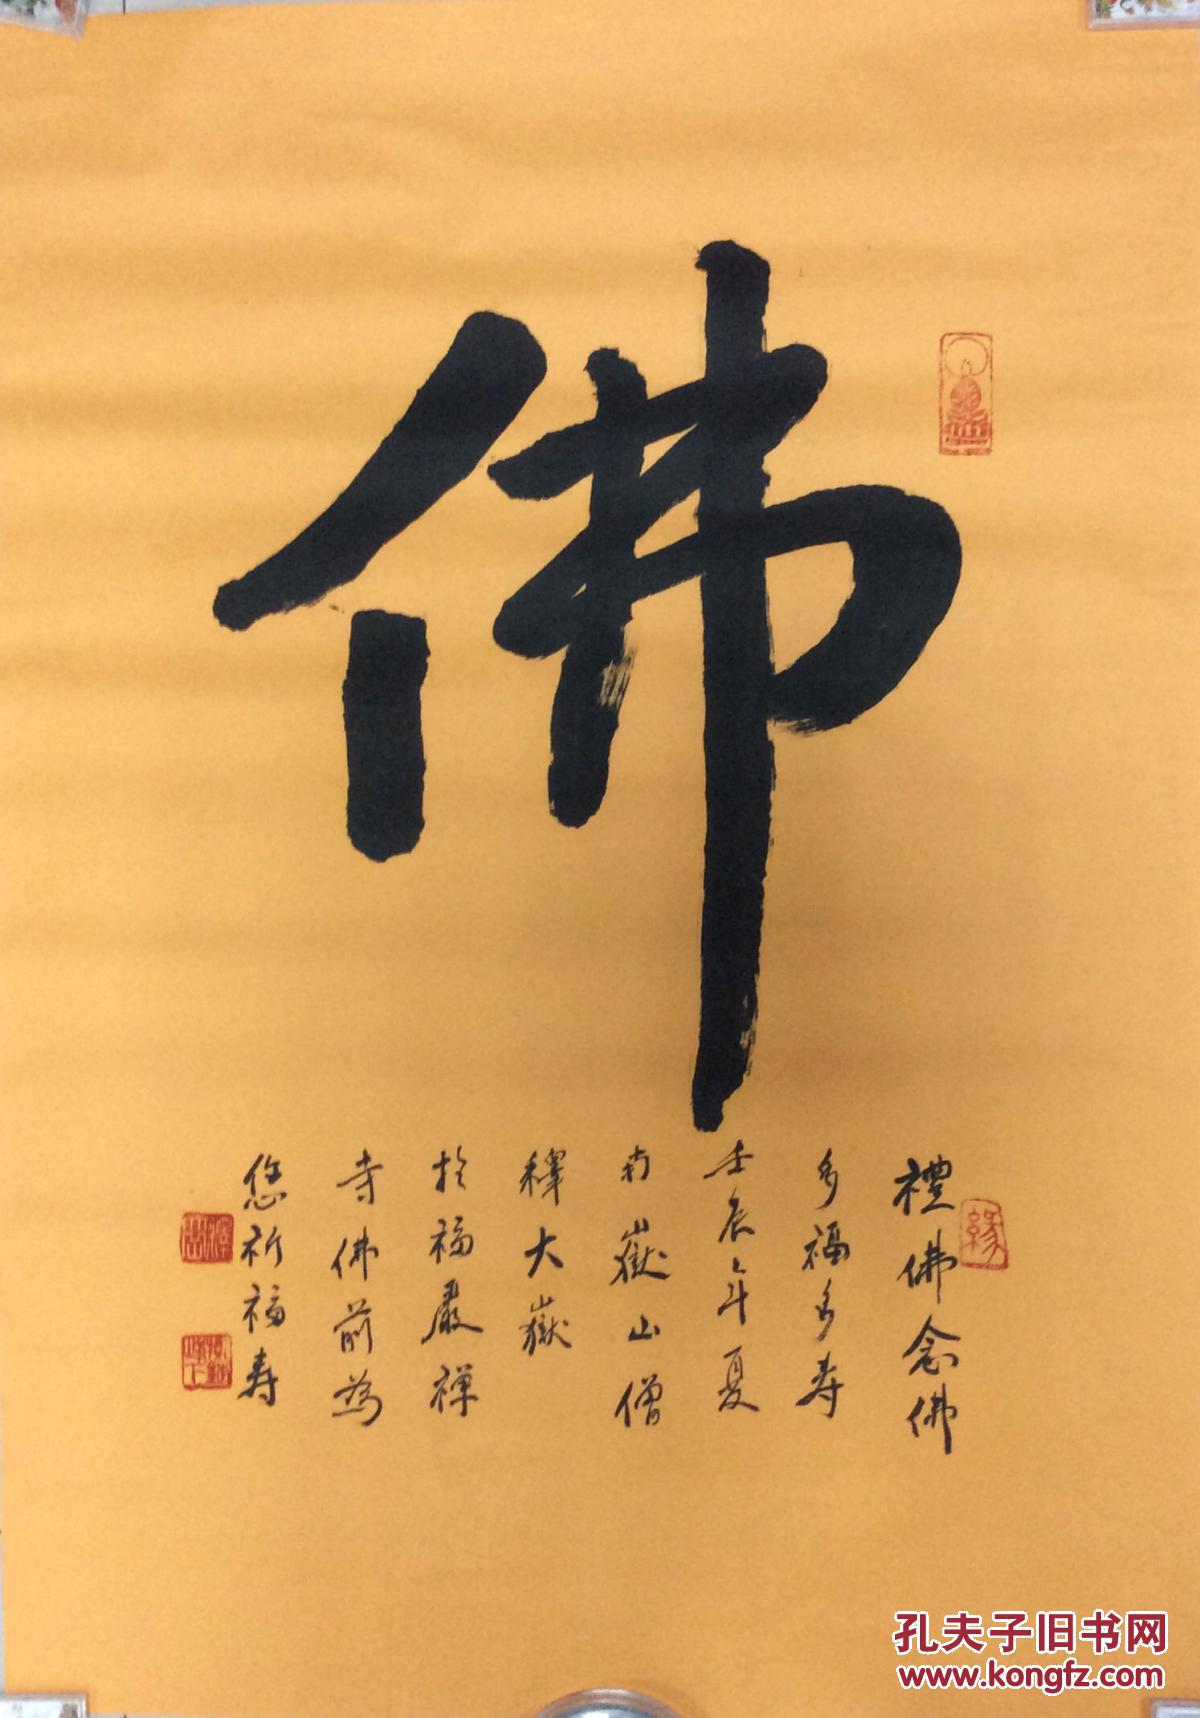 佛
禮佛念佛
多福多寿
壬辰年夏
南嶽山僧
釋大嶽
於福嚴禪
寺佛前為
您祈福寿
緣
孔夫子旧书网
www.kongfz.com